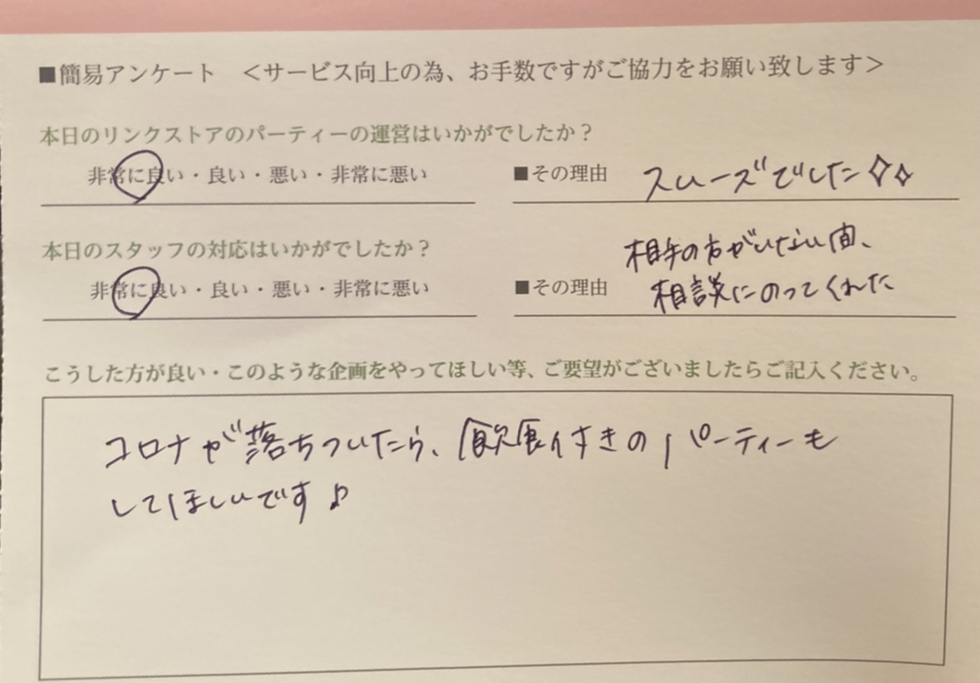 ■簡易アンケート ＜サービス向上の為、お手数ですがご協力をお願い致します＞
本日のリンクストアのパーティーの運営はいかがでしたか？
非常に良い・良い・悪い・非常に悪い ■その理由 スムーズでした
本日のスタッフの対応はいかがでしたか？
相手の方がいない間、
非常に良い・良い・悪い・非常に悪い ■その理由 相談にのってくれた
こうした方が良い・このような企画をやってほしい等、ご要望がございましたらご記入ください。
コロナが落ちついたら、飲食付きのパーティーも
してほしいです♪